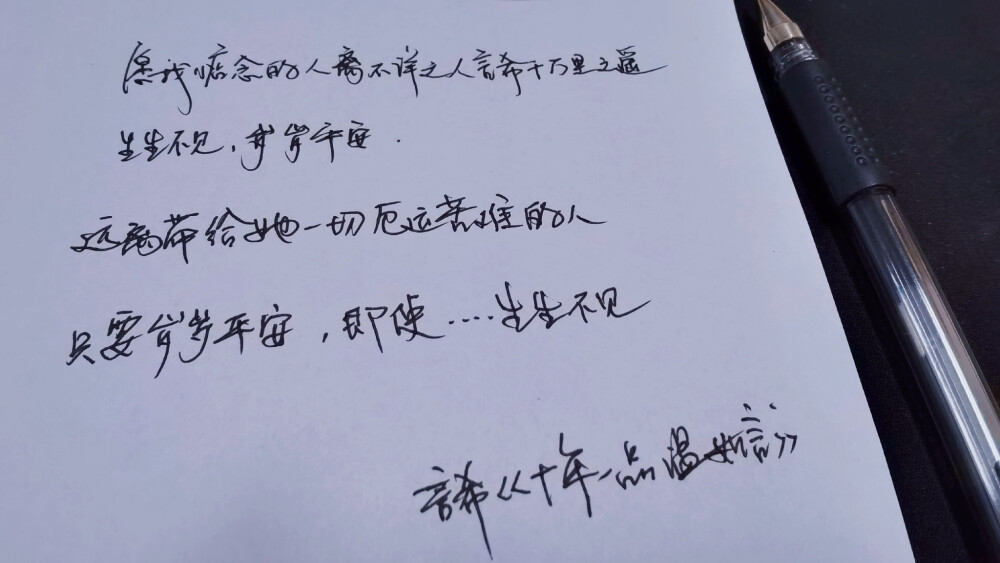 愿我惦念的人离不详之人言希十万里之遥
生生不见，岁岁平安.
远离带给她一切厄运苦难的人
只要岁岁平安，即使....生生不见
言希《十年一品温如言》